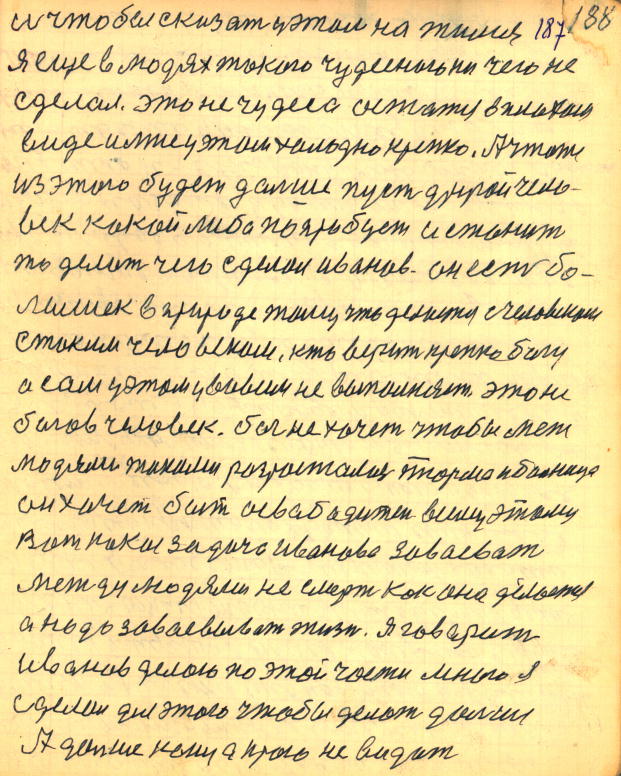 и чтобы сказат уэтом на 187 188
я еще в людях такого чудесного ни чего не
сделал. это не чудеса остатся в плохом
виде и уэтом холодно крепко. А что
из этого будет далше пуст другой чело-
век какой либо попробует и станит
то делат чего сделал иванов. он ест бо-
лшик в природе тому что делается с человеком
с таким человеком, кто верит крепко богу
а сам уэтому вовсем не выполняет. это не
богов человек. бог не хочет чтобы меж
людями такими розросталас тюрма и болница
он хочет быт освабадител всему этому
вот какая задача иванова заваеват
между людями не смерт как она делается
а надо заваевыват жизн. я говорит
иванов делаю по этой части много я
сделал для этого чтобы делат далше
А далше кони а прого не видат